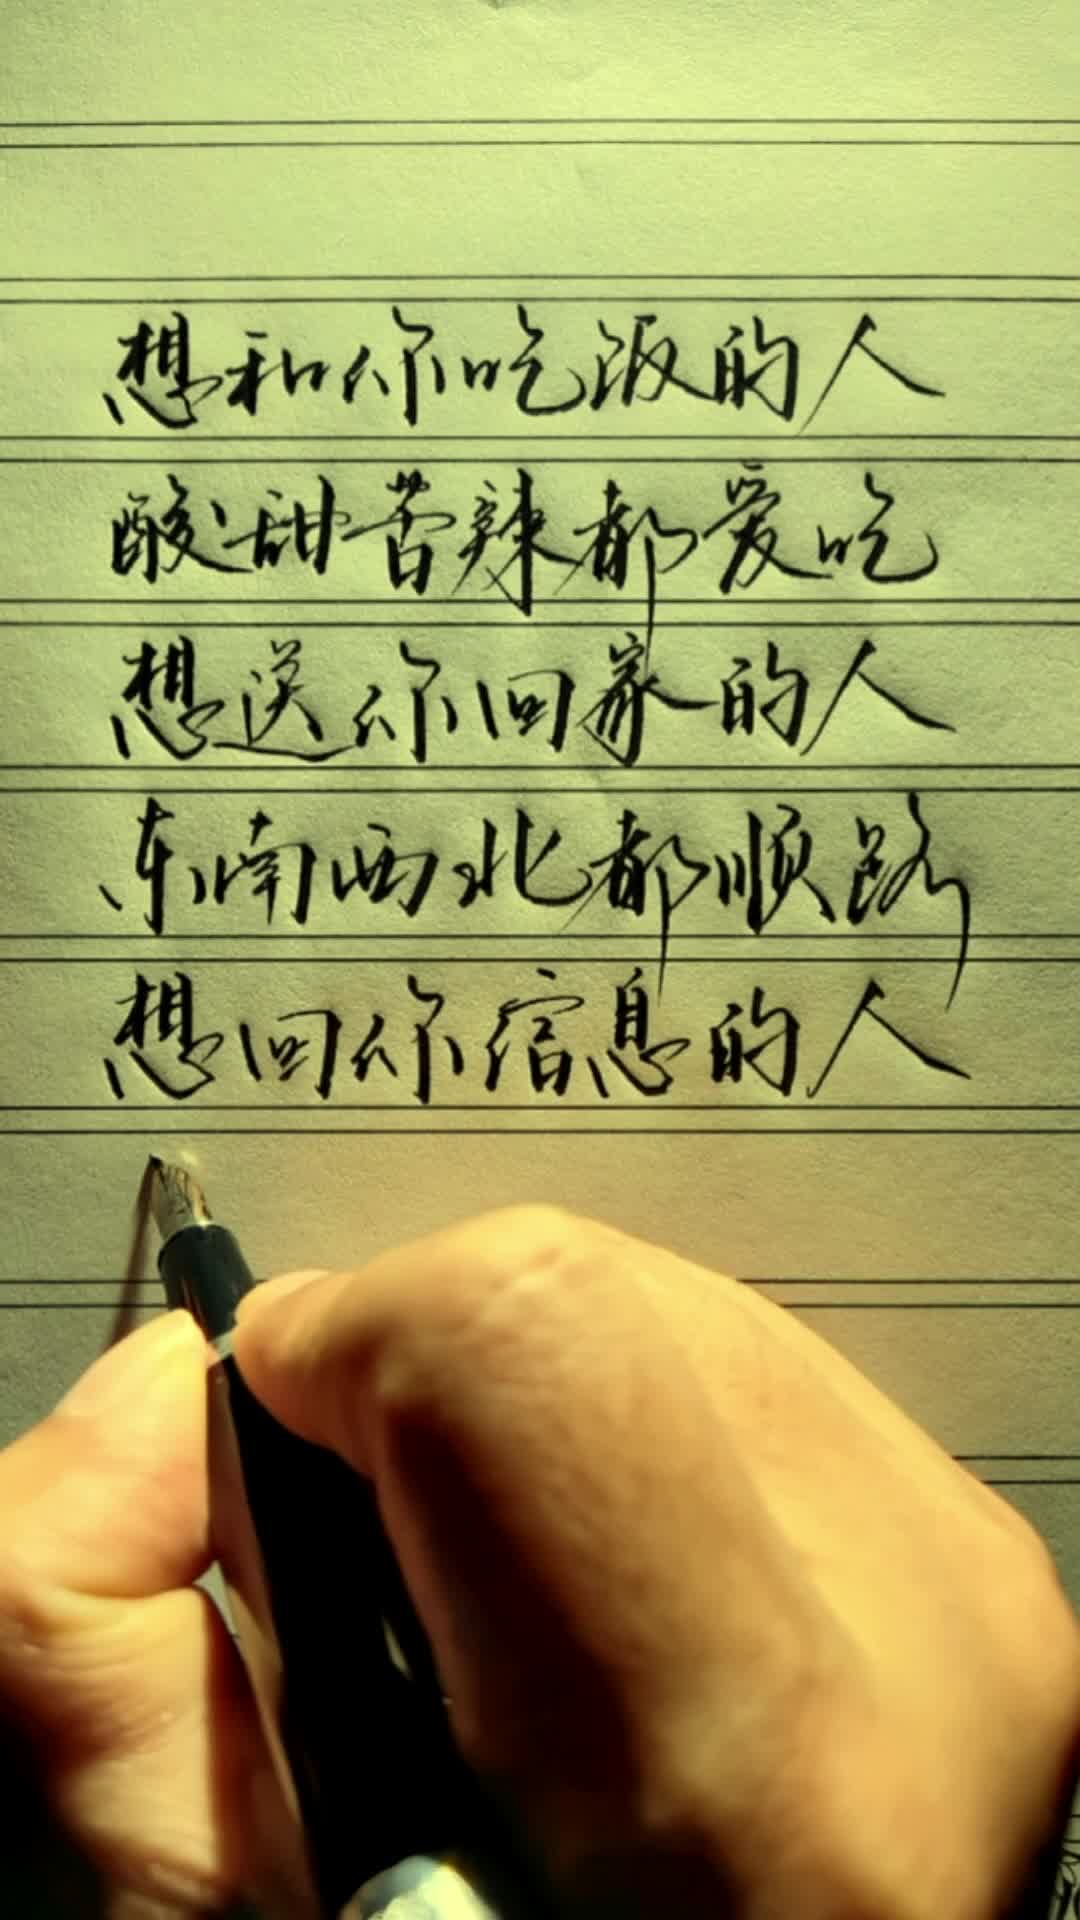 想和你吃饭的人
酸甜苦辣都爱吃
想送你回家的人
东南西北都顺路
想回你信息的人